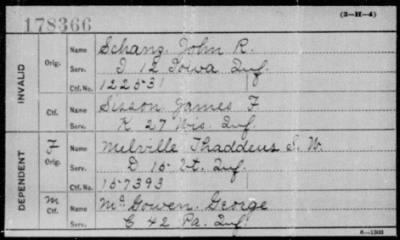 178366
(3-H-4)
INVALID
Orig.
Name Schanz John R.
Serv. I 12 Iowa Inf.
Ctf. No. 122531
Ctf.
Name Sisson James F
Serv. K 27 Wis. Inf.
DEPENDENT
F
Orig.
Name Melville Thaddeus S. W.
Serv. D 15 Vt. Inf.
Ctf. No. 157393
M
Ctf.
Name McGowen George
Serv. C 42 Pa. Inf.